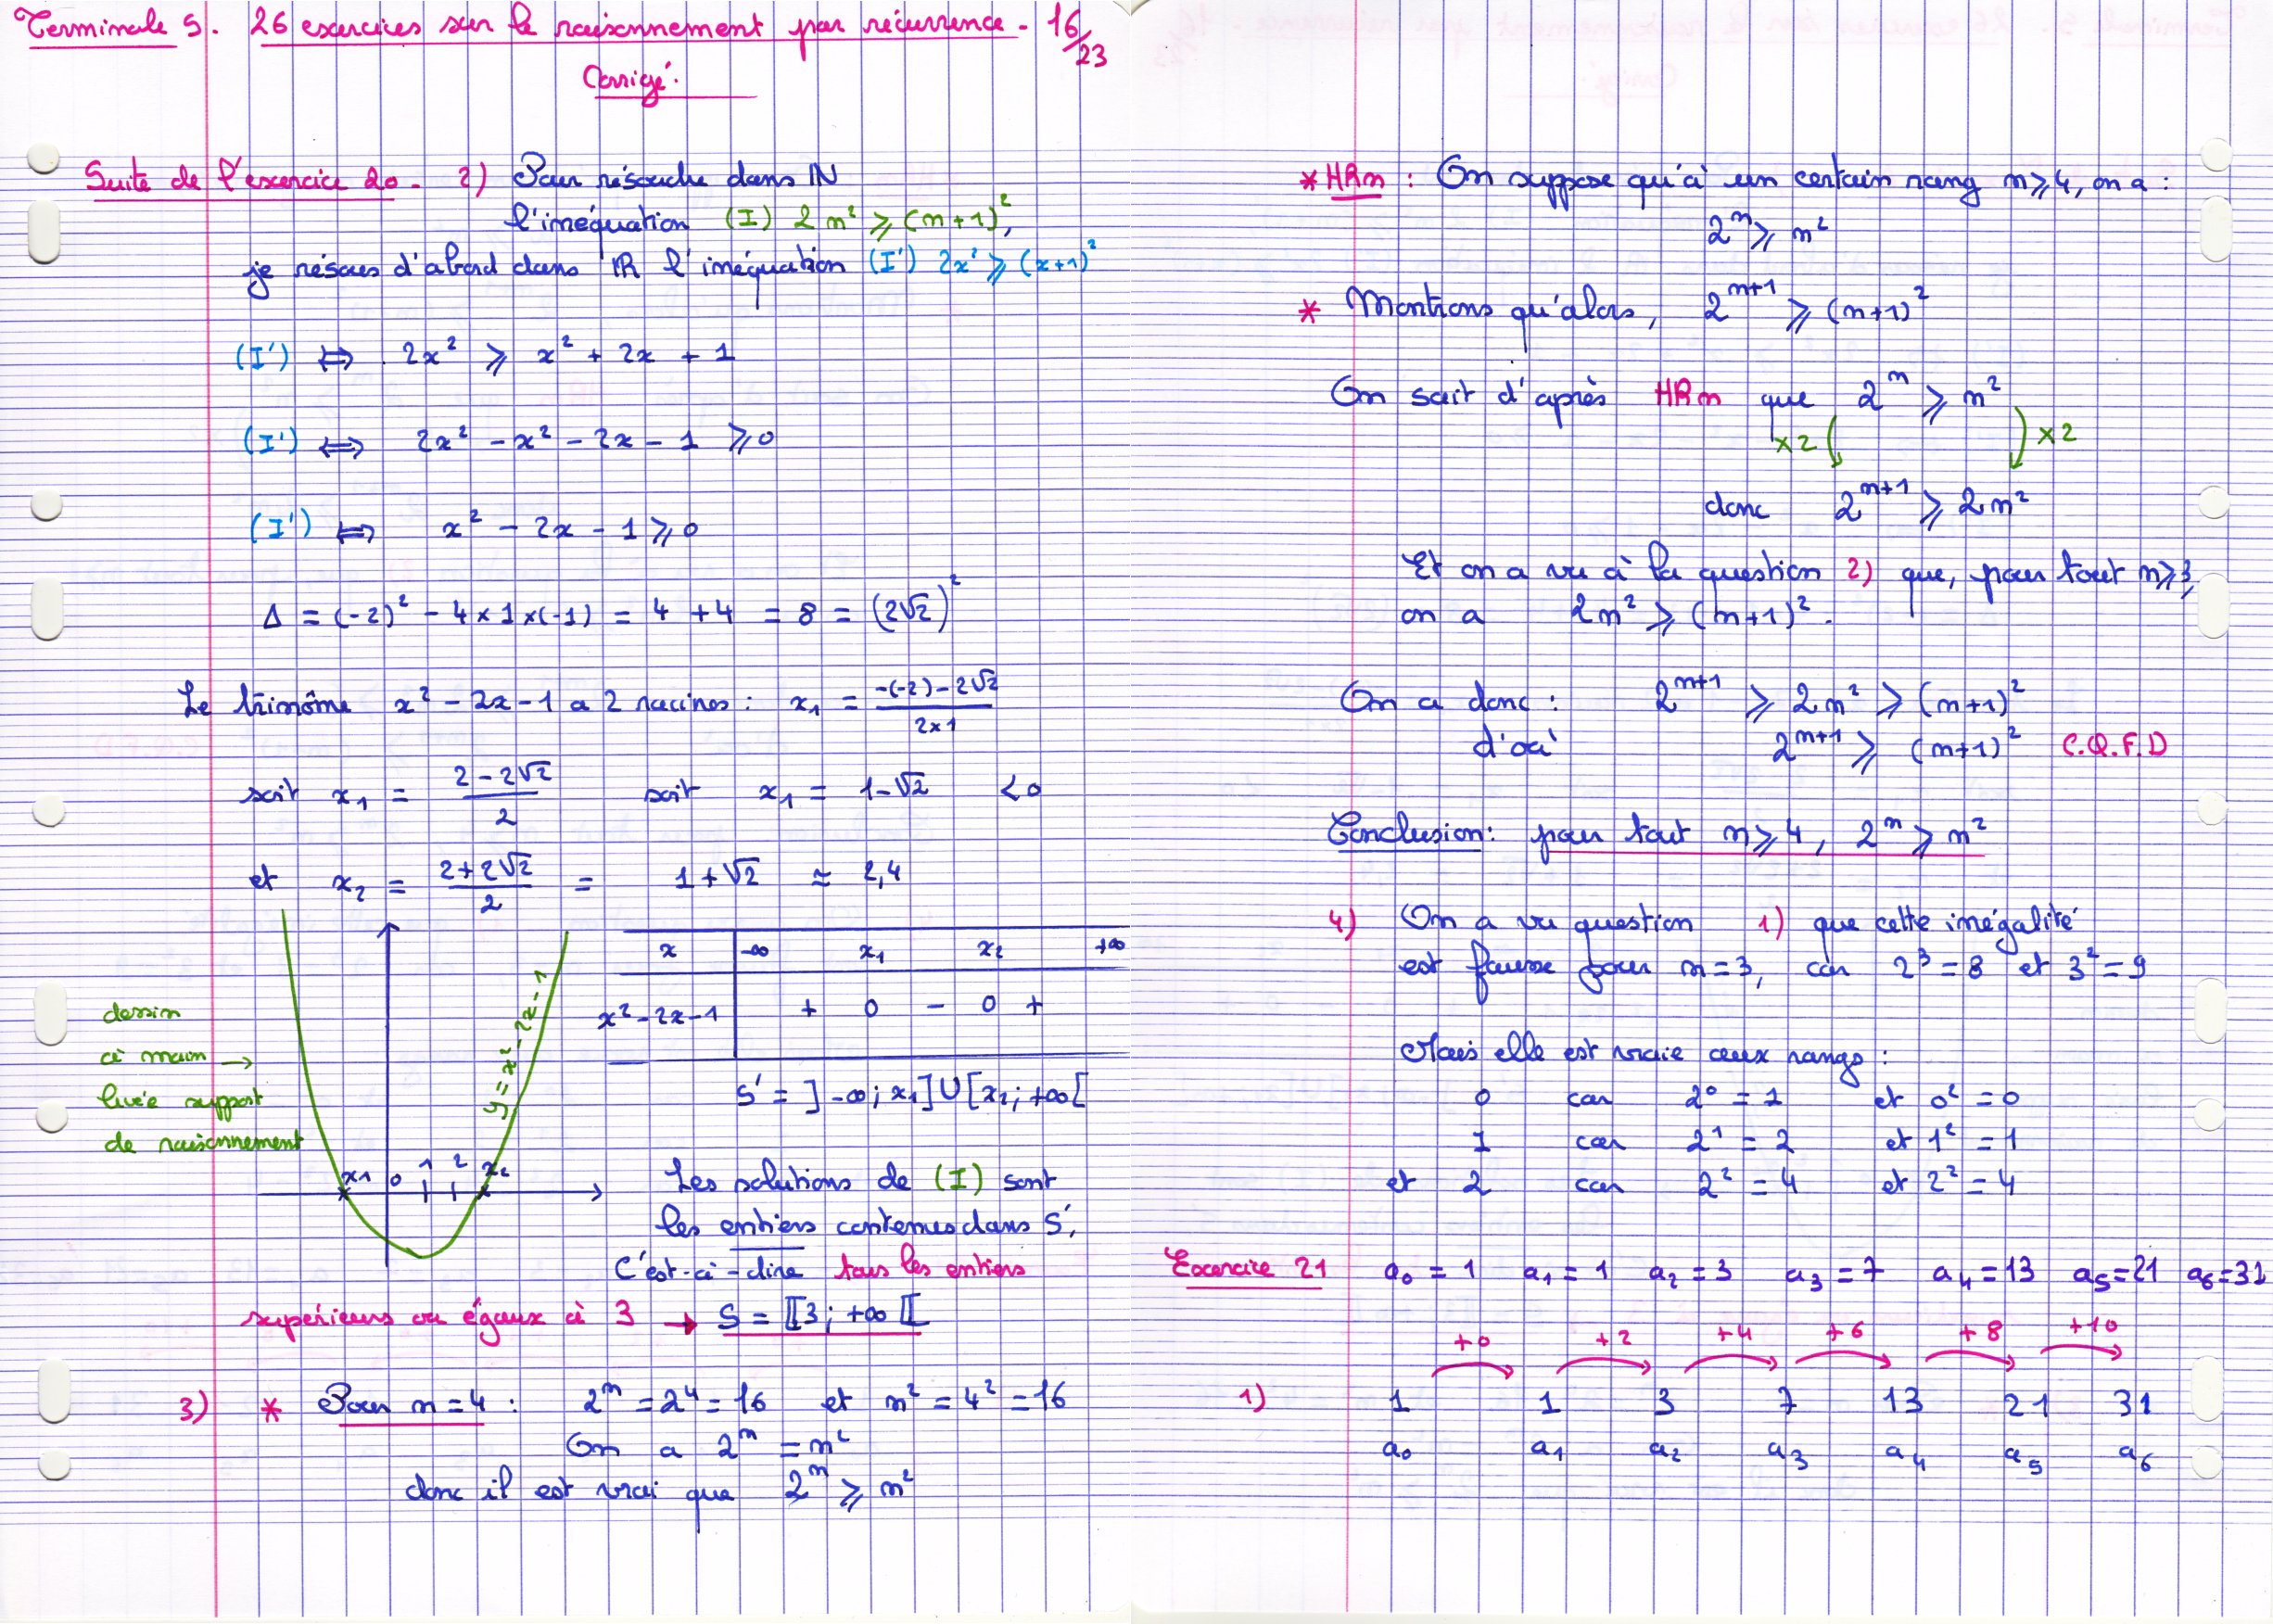 Terminale S. 26 exercices sur le raisonnement par récurrence - 16/23
Corrigé.
Suite de l'exercice 20. 2) Pour résoudre dans ℕ
l'inéquation (I) 2n² ⩾ (n+1)²,
je résous d'abord dans ℝ l'inéquation (I') 2x² ⩾ (x+1)²
(I') ⟺ 2x² ⩾ x² + 2x + 1
(I') ⟺ 2x² - x² - 2x - 1 ⩾ 0
(I') ⟺ x² - 2x - 1 ⩾ 0
Δ = (-2)² - 4×1×(-1) = 4 + 4 = 8 = (2√2)²
Le trinôme x² - 2x - 1 a 2 racines : x₁ = (-(-2) - 2√2)/(2×1)
soit x₁ = (2 - 2√2)/2 soit x₁ = 1-√2 < 0
et x₂ = (2+2√2)/2 = 1+√2 ≈ 2,4
x -∞ x₁ x₂ +∞
x²-2x-1 + 0 - 0 +
dessin
à main →
levée support
de raisonnement
y = x² - 2x - 1
x₁ 0 1 2 x₂
S' = ]-∞; x₁] U [x₂; +∞[
Les solutions de (I) sont
les entiers contenus dans S',
c'est-à-dire tous les entiers
supérieurs ou égaux à 3 → S = ⟦3; +∞⟦
3) * Pour n = 4 : 2ⁿ = 2⁴ = 16 et n² = 4² = 16
On a 2ⁿ = n²
donc il est vrai que 2ⁿ ⩾ n²
* HRn : On suppose qu'à un certain rang n⩾4, on a :
2ⁿ ⩾ n²
* Montrons qu'alors, 2ⁿ⁺¹ ⩾ (n+1)²
On sait d'après HRn que 2ⁿ ⩾ n²
×2 ×2
donc 2ⁿ⁺¹ ⩾ 2n²
Et on a vu à la question 2) que, pour tout n⩾3,
on a 2n² ⩾ (n+1)².
On a donc : 2ⁿ⁺¹ ⩾ 2n² ⩾ (n+1)²
d'où 2ⁿ⁺¹ ⩾ (n+1)² C.Q.F.D
Conclusion : pour tout n⩾4, 2ⁿ ⩾ n²
4) On a vu question 1) que cette inégalité
est fausse pour n=3, car 2³ = 8 et 3² = 9
Mais elle est vraie aux rangs :
0 car 2⁰ = 1 et 0² = 0
1 car 2¹ = 2 et 1² = 1
et 2 car 2² = 4 et 2² = 4
Exercice 21 a₀ = 1 a₁ = 1 a₂ = 3 a₃ = 7 a₄ = 13 a₅ = 21 a₆ = 31
+0 +2 +4 +6 +8 +10
1) 1 1 3 7 13 21 31
a₀ a₁ a₂ a₃ a₄ a₅ a₆